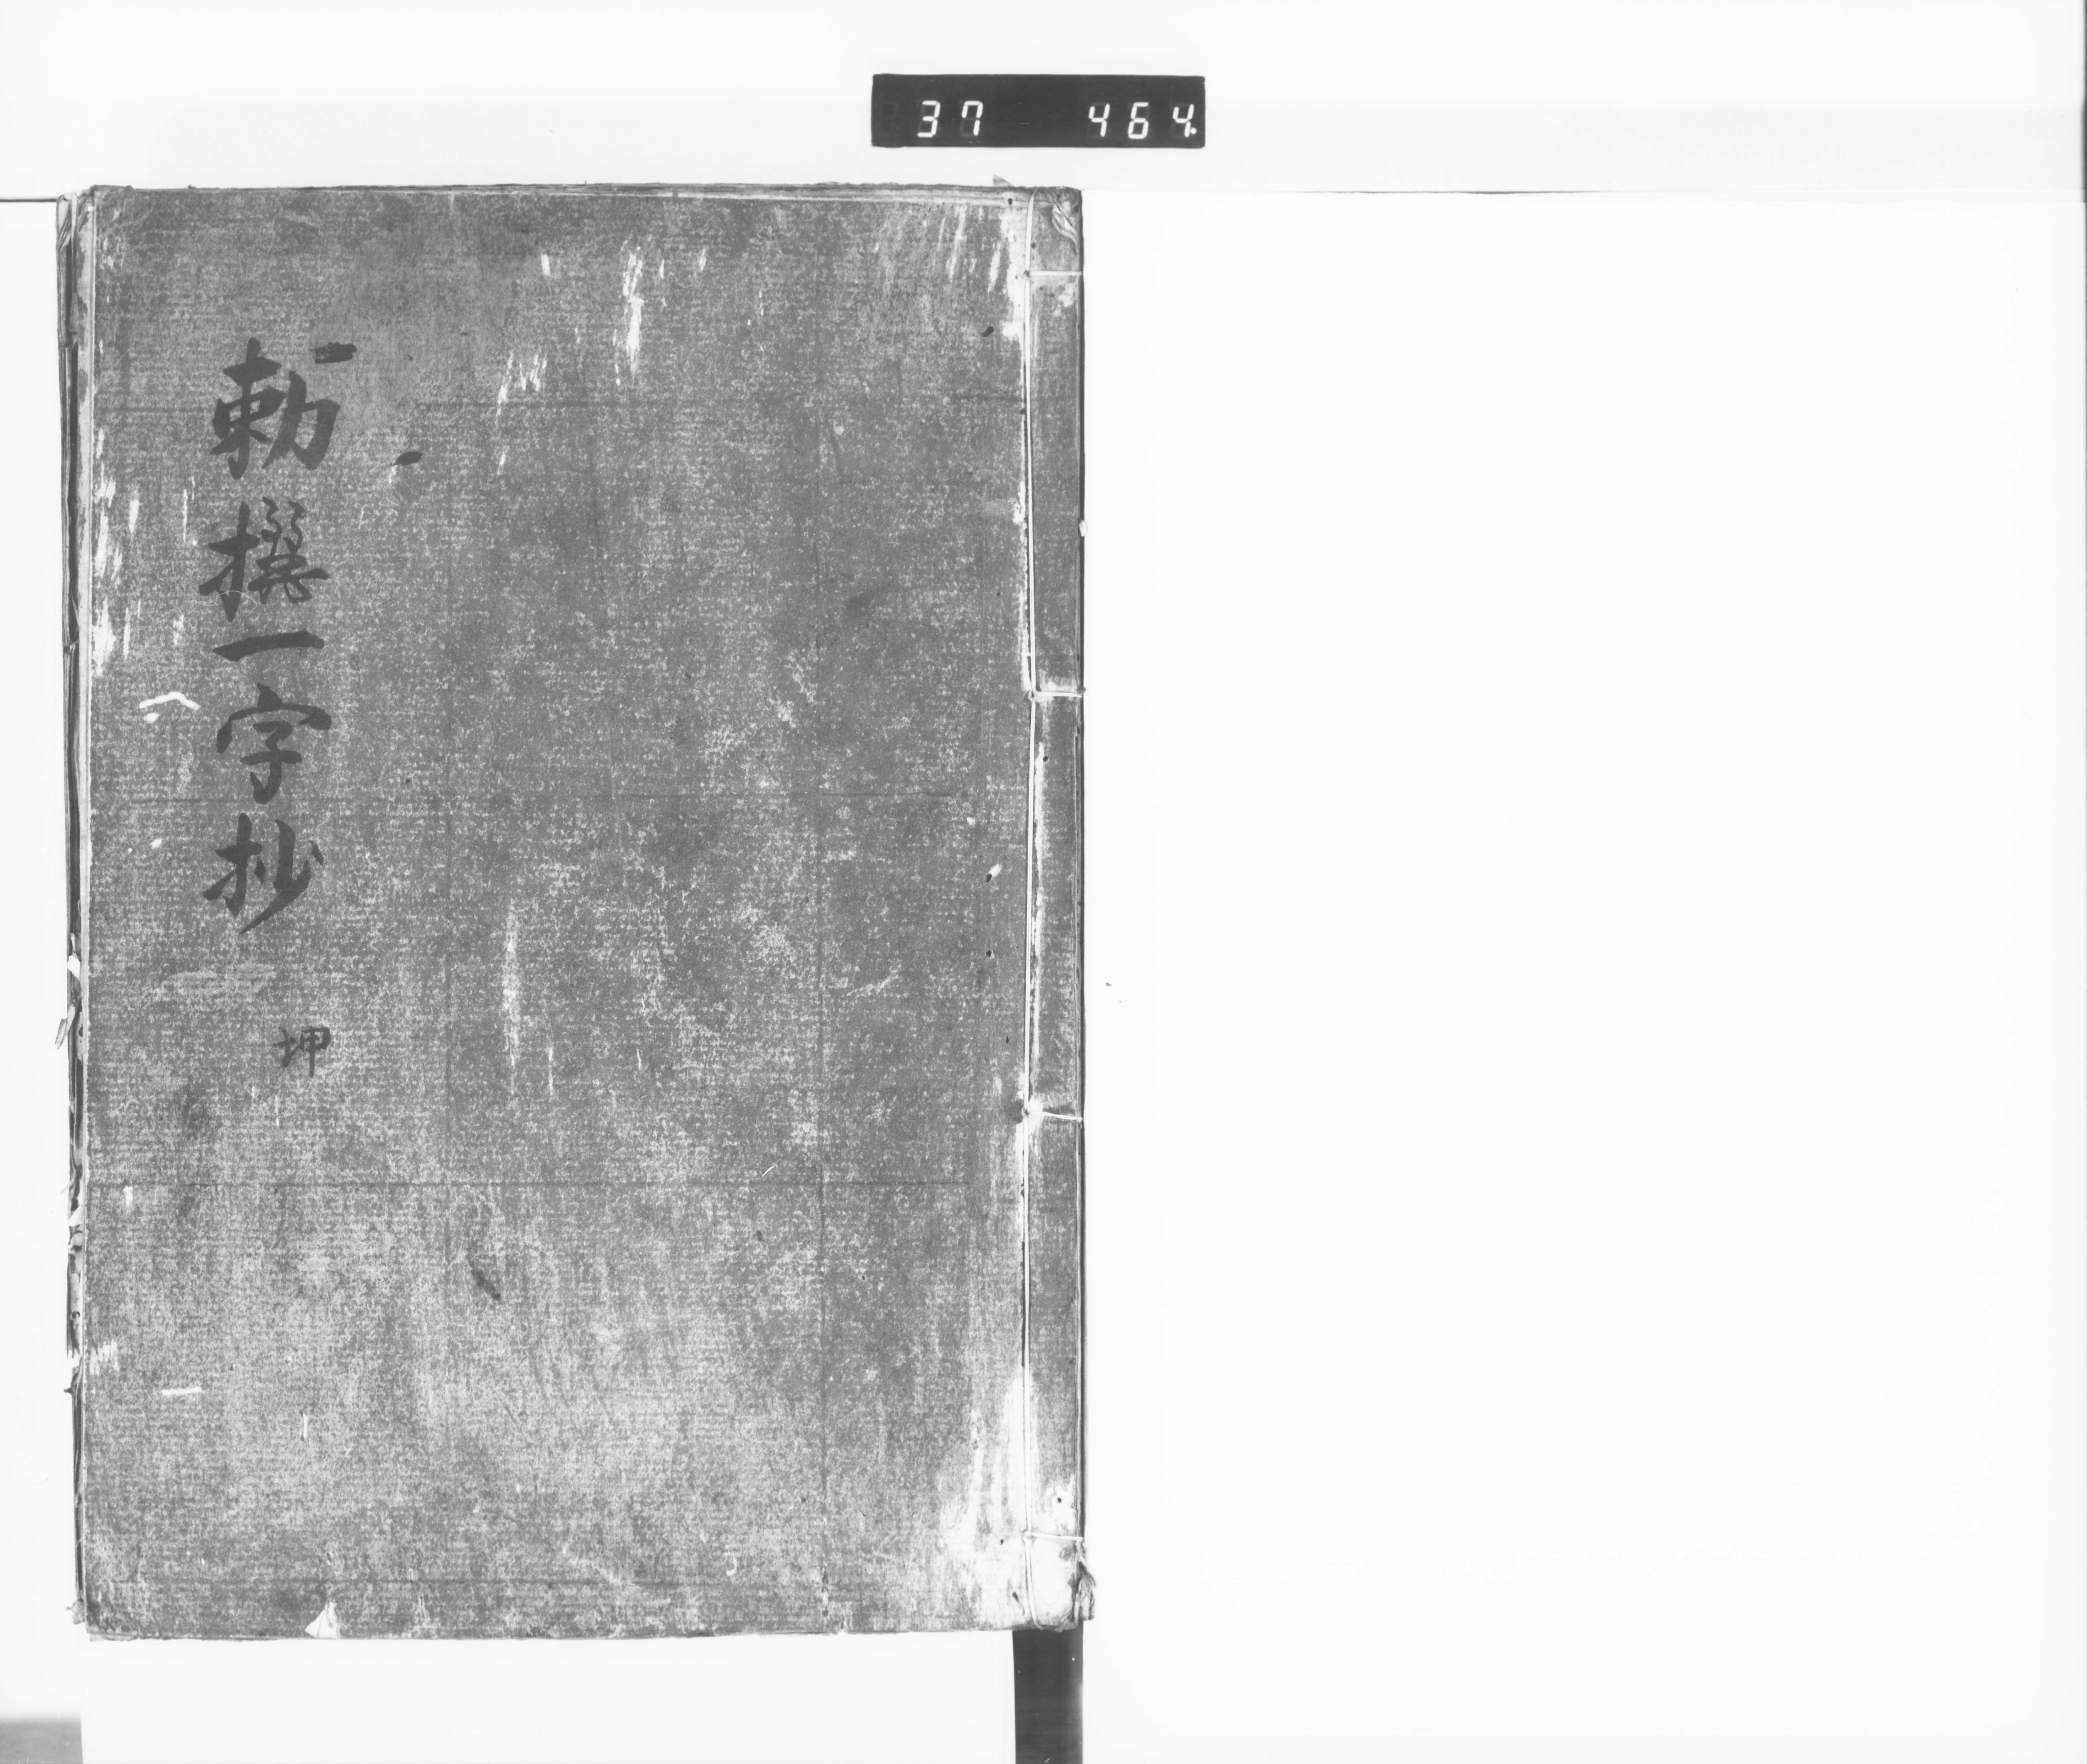 37 464
勅撰一字抄
坤